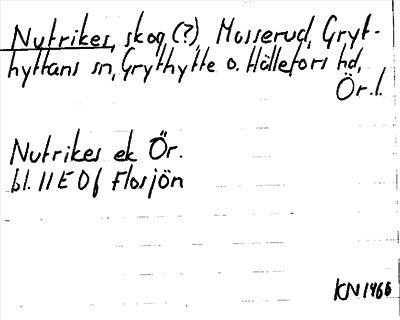 Nutrikes, skog (?), Mosserud, Gryt-
hyttans sn, Grythytte o. Hällefors hd,
Ör. l.
Nutrikes ek Ör.
bl. 11E 0f Flosjön
KN 1966